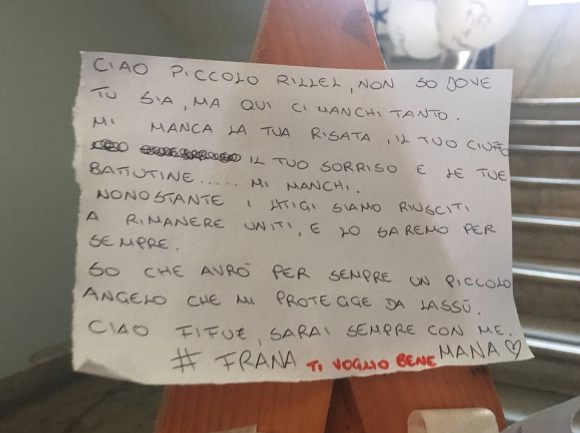 CIAO PICCOLO RILLEL, NON SO DOVE
TU SIA, MA QUI CI MANCHI TANTO.
MI MANCA LA TUA RISATA, IL TUO CIUFFO
IL TUO SORRISO E LE TUE
BATTUTINE..... MI MANCHI.
NONOSTANTE I LITIGI SIAMO RIUSCITI
A RIMANERE UNITI, E LO SAREMO PER
SEMPRE.
SO CHE AVRÒ PER SEMPRE UN PICCOLO
ANGELO CHE MI PROTEGGE DA LASSÙ.
CIAO FIFUE, SARAI SEMPRE CON ME.
# FRANA TI VOGLIO BENE MANA ♡